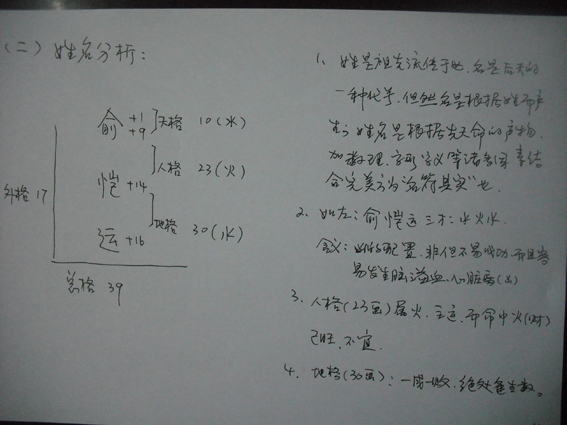 (二) 姓名分析:
俞 +1 +9 ]天格 10(水)
]人格 23(火)
恺 +14
]地格 30(水)
运 +16
外格 17
总格 39
1、姓是祖先流传于世,名是后天的
一种代号,但然名是根据姓而产
生;姓名是根据先天命的产物,
加数理、字形字义等诸多因素结
合完美方为"名符其实"也.
2、如左:俞恺运三才:水火水
含义:此的配置,非但不易成功,而且容
易发生脑溢血、心脏病(凶)
3、人格(23画)属火,主运,而命中火(财)
已旺,不宜.
4、地格(30画):一成一败,绝处逢生数。